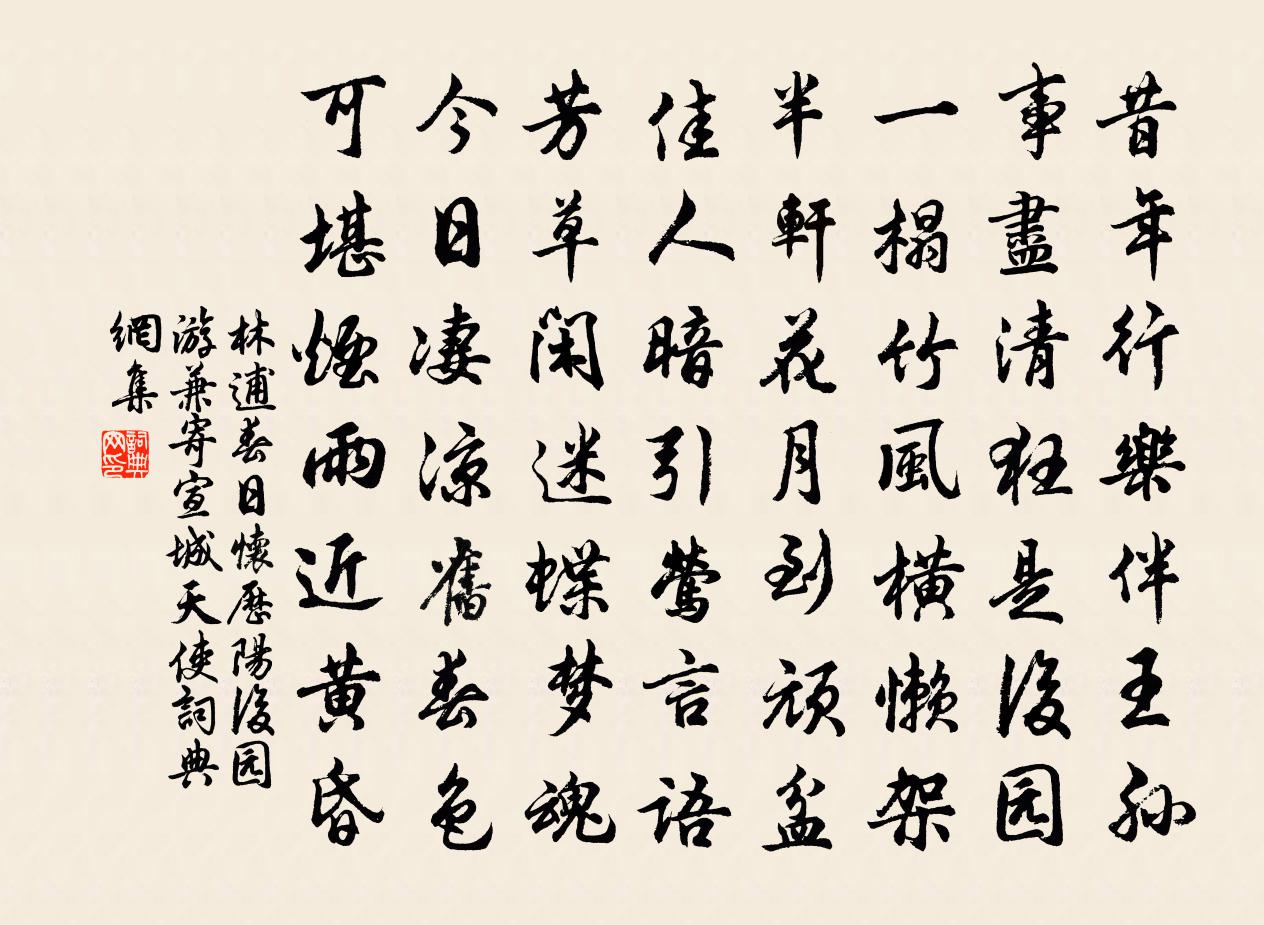 昔年行樂伴王孫
事盡清狂是後园
一榻竹風橫懶架
半軒花月到頑盆
佳人暗引鶯言語
芳草閑迷蝶梦魂
今日凄凉舊春色
可堪煙雨近黃昏
林逋春日懷歷陽後园
游兼寄宣城天使詞典
網集
詞典
网印